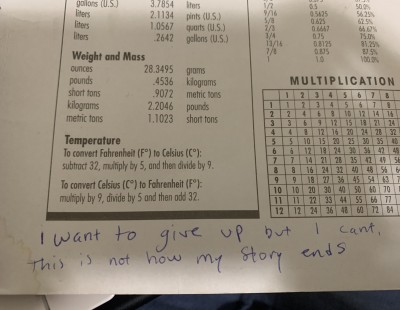 gallons (U.S.) 3.7854 liters
liters 2.1134 pints (U.S.)
liters 1.0567 quarts (U.S.)
liters .2642 gallons (U.S.)
Weight and Mass
ounces 28.3495 grams
pounds .4536 kilograms
short tons .9072 metric tons
kilograms 2.2046 pounds
metric tons 1.1023 short tons
Temperature
To convert Fahrenheit (F°) to Celsius (C°):
subtract 32, multiply by 5, and then divide by 9.
To convert Celsius (C°) to Fahrenheit (F°):
multiply by 9, divide by 5 and then add 32.
1/2 0.5 50.0%
9/16 0.5625 56.25%
5/8 0.625 62.5%
2/3 0.6667 66.67%
3/4 0.75 75.0%
13/16 0.8125 81.25%
7/8 0.875 87.5%
1 1.0 100.0%
MULTIPLICATION
1 2 3 4 5 6 7 8
1 1 2 3 4 5 6 7 8
2 2 4 6 8 10 12 14 16
3 3 6 9 12 15 18 21 24
4 4 8 12 16 20 24 28 32
5 5 10 15 20 25 30 35 40
6 6 12 18 24 30 36 42 48
7 7 14 21 28 35 42 49 56
8 8 16 24 32 40 48 56 64
9 9 18 27 36 45 54 63
10 10 20 30 40 50 60 70
11 11 22 33 44 55 66 77
12 12 24 36 48 60 72 84
I want to give up but I cant,
This is not how my story ends